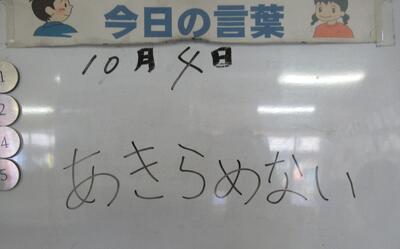 今日の言葉
10月4日
あきらめない
1
2
4
5